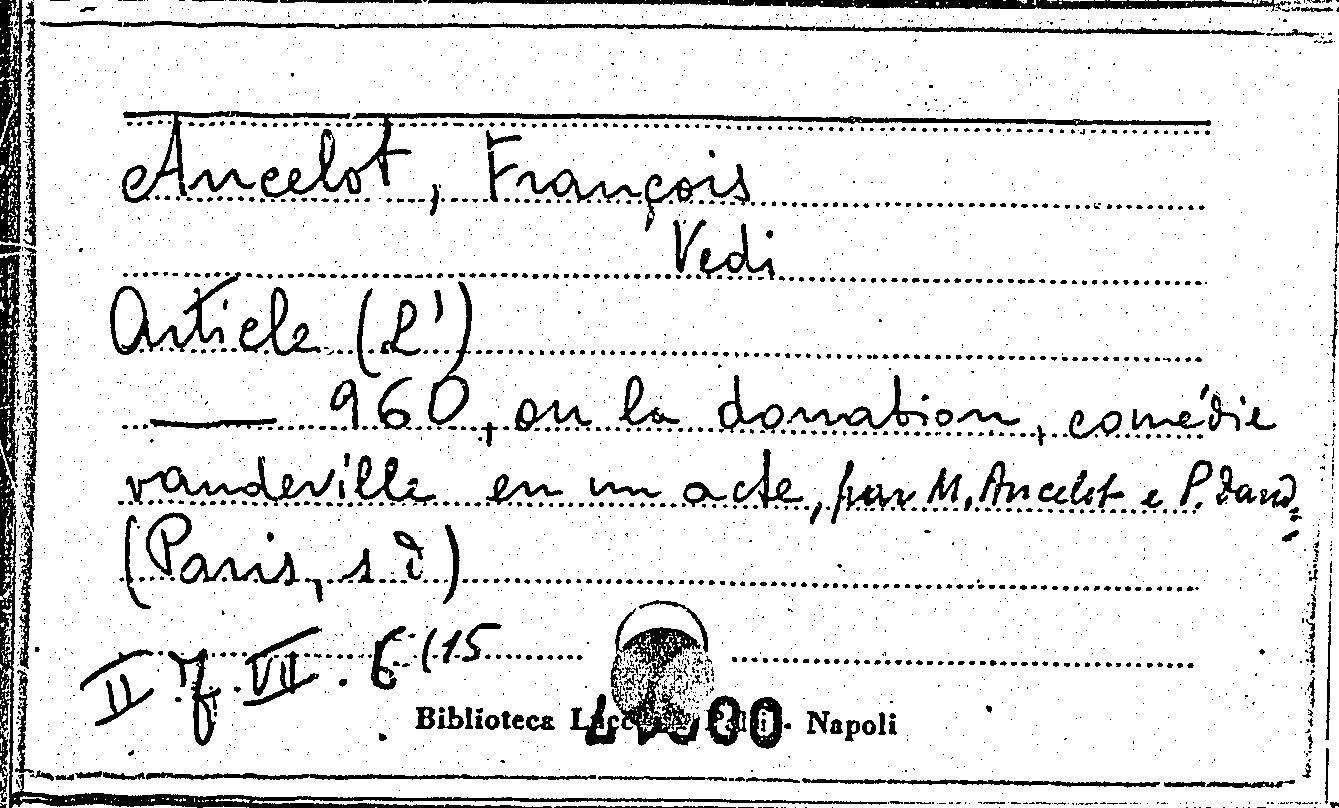 Ancelot, François
Vedi
Article (L')
—— 960, ou la donation, comédie
vaudeville en un acte, par M. Ancelot e P. Daud=
(Paris, s d)
II . VII . 6 (15
Biblioteca - Napoli